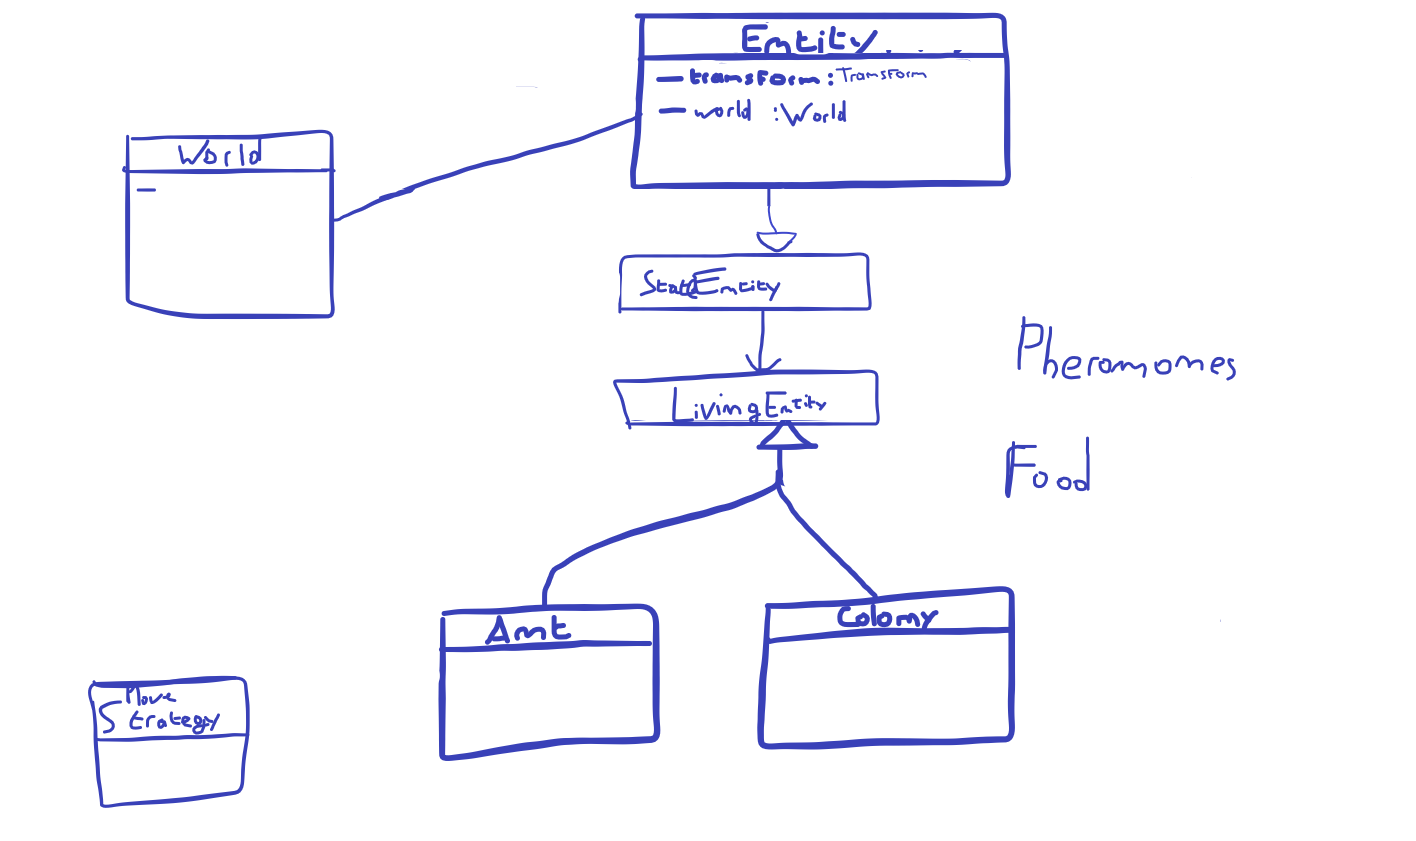 Entity
- transform : Transform
- world : World
World
-
StateEntity
LivingEntity
Pheromones
Food
Ant
Colony
Move
Strategy